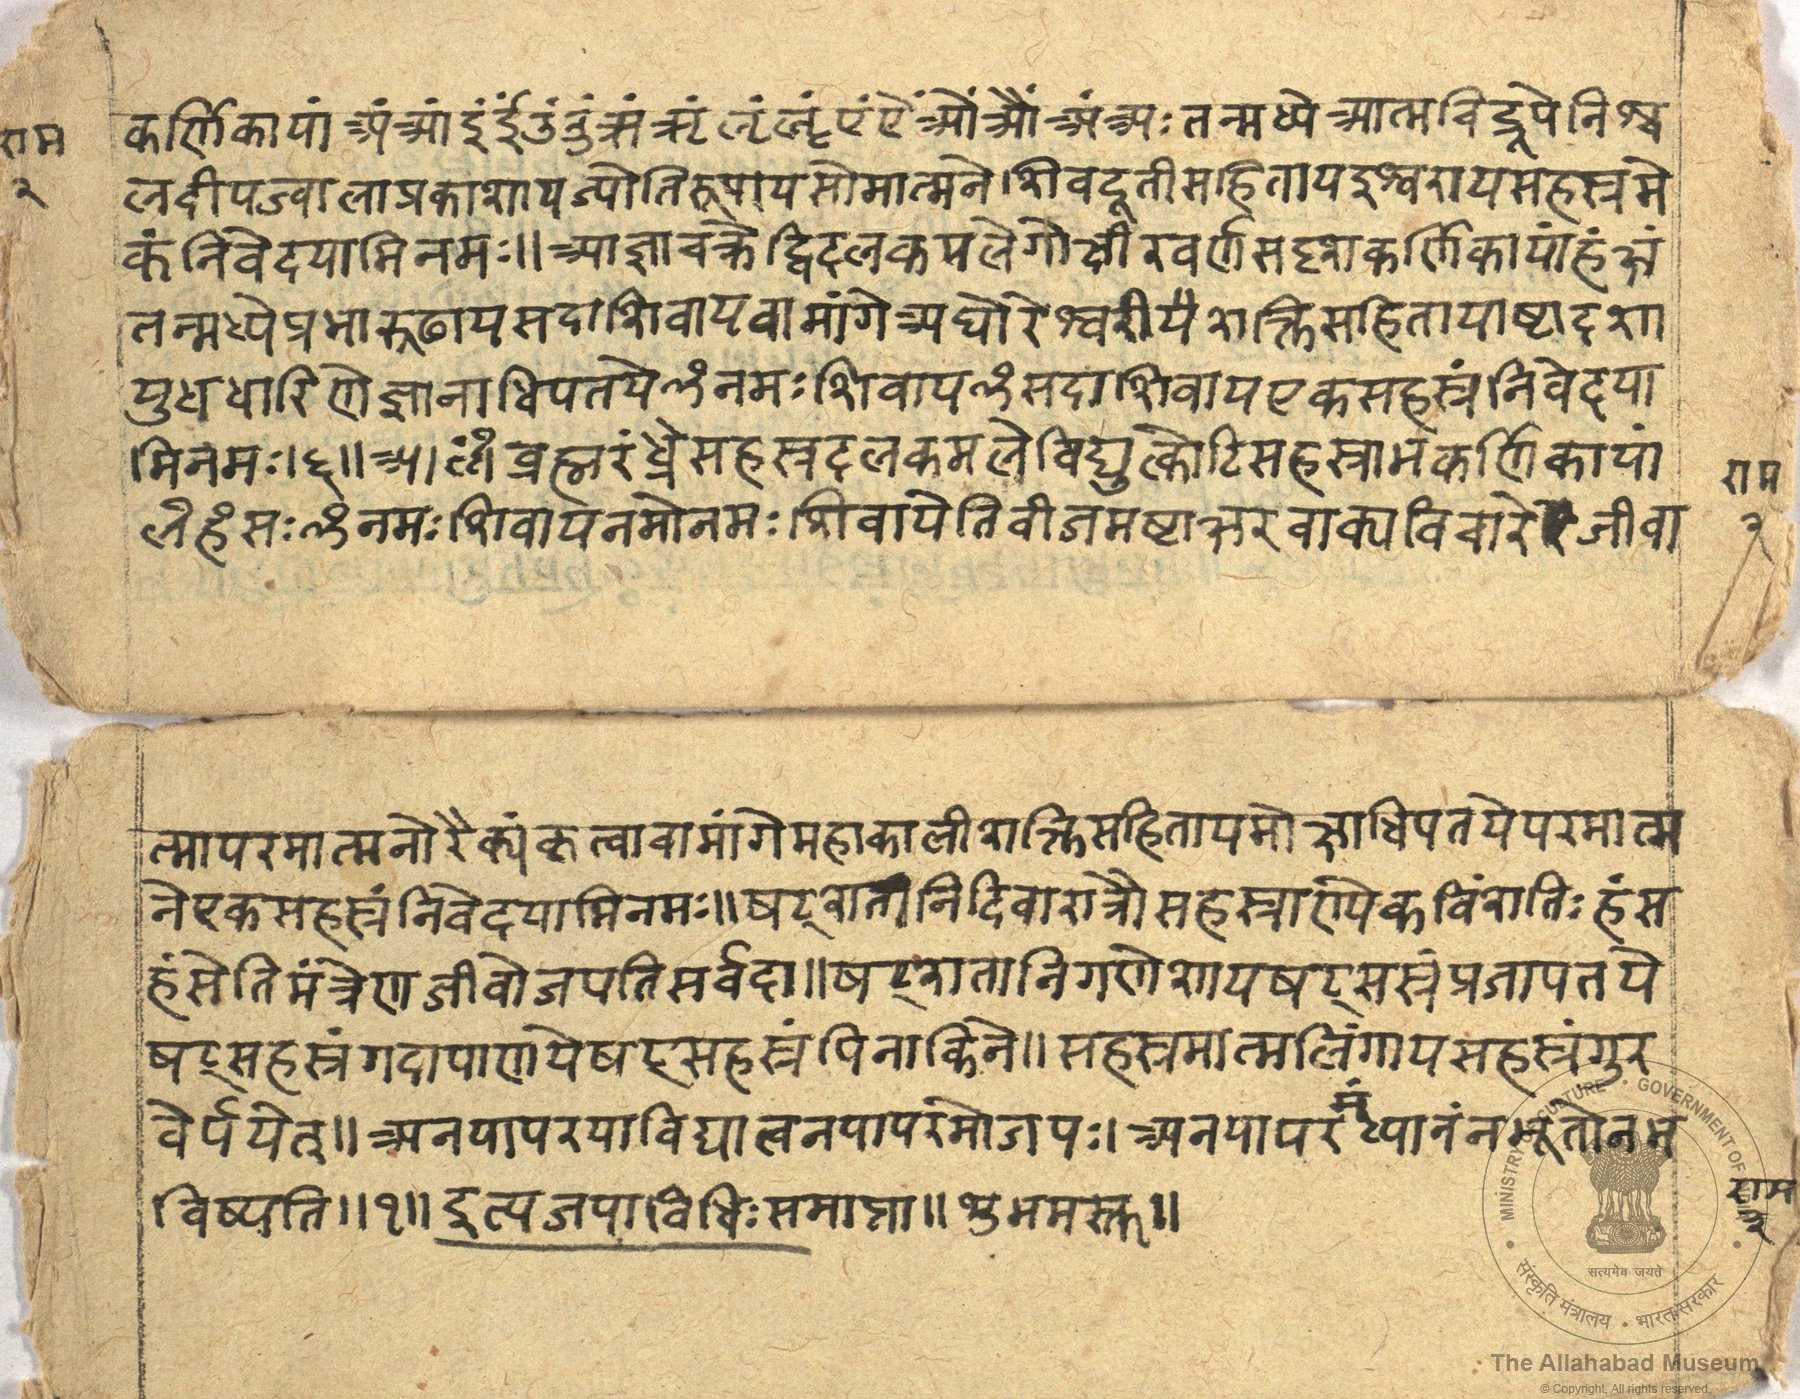 कर्णिकायां अंआंइंईंउंऊंऋंॠंऌंॡंएंऐंओंऔंअंअः तन्मध्ये आत्मविद्रूपे निश्च
राम
२
लदीपज्वालाप्रकाशायज्योतिरूपायसोमात्मने शिवदूतीसहितायइश्वरायसहस्त्रमे
कं निवेदयामि नमः॥ आज्ञाचक्रे द्विदलकमले गोक्षीरवर्णसदृशकर्णिकायांहंक्षं
तन्मध्येप्रभारूढायसदाशिवायवामांगे अघोरेश्वरीयै शक्तिसहितायाष्टादशा
युधधारिणे ज्ञानाधिपतये ॐ नमः शिवाय ॐ सदाशिवाय एकसहस्त्रं निवेदया
मि नमः।६॥ब्रह्मरंध्रे सहस्त्रदलकमले विद्युत्कोटिसहस्त्राभकर्णिकायां
राम
२
हंसः ॐ नमः शिवायनमोनमः शिवायेति वीजमष्टाक्षरवाक्यविचारे जीवा
त्मापरमात्मनोरैक्यंकृत्वावामांगेमहाकालीशक्तिसहितायमोक्षाधिपतयेपरमात्म
ने एकसहस्त्रं निवेदयामि नमः॥ षट्शतानि दिवारात्रौ सहस्त्राण्येकविंशतिः हंस
हंसेति मंत्रेण जीवो जपति सर्वदा॥ षट्शतानि गणेशाय षट्सस्त्रं प्रजापतये
षट्सहस्त्रं गदापाणये षट्सहस्त्रं पिनाकिने॥ सहस्त्रमात्मलिंगाय सहस्त्रं गुर
वेर्पयेत्॥ अनपापरयाविद्यात्वनपापरंमोजपः। अनपापरंमंध्यानंनभूतोनभ
राम
२
विष्यति॥१॥ इत्यजपाविधिः समाप्ता॥ शुभमस्तु॥
MINISTRY OF CULTURE • GOVERNMENT OF INDIA
सत्यमेव जयते
संस्कृति मंत्रालय • भारत सरकार
The Allahabad Museum
© Copyright, All rights reserved.